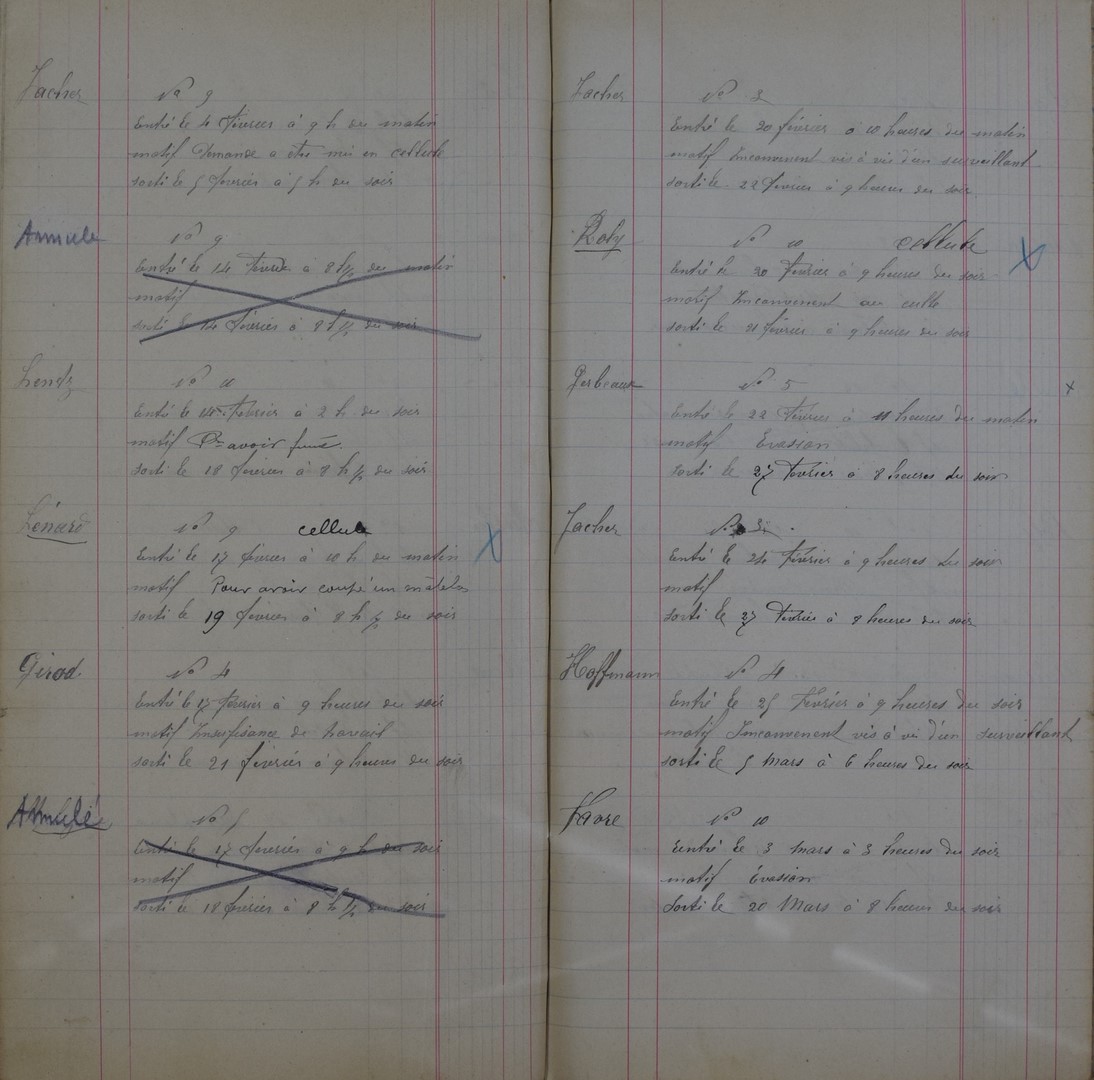 Jacher No 9
Entré le 4 février à 9 h du matin
motif Demande a être mis en cellule
sorti le 5 février à 5 h du soir
Annulé
No 9
Entré le 14 février à 8 h ½ du matin
motif
sorti le 14 février à 8 h ½ du soir
No 10
Entré le 14 février à 2 h du soir
motif Pr avoir fumé.
sorti le 18 février à 8 h ½ du soir
Lénard No 9 cellule
Entré le 17 février à 10 h du matin
motif Pour avoir coupé un matelas
sorti le 19 février à 8 h ½ du soir
Girod No 4
Entré le 17 février à 9 heures du soir
motif Insufisance de travail
sorti le 21 février à 9 heures du soir
Annulé
No 5
Entré le 17 février à 9 h du soir
motif
sorti le 18 février à 8 h ½ du soir
Jacher No 3
Entré le 20 février à 10 heures du matin
motif Inconvenent vis à vis d'un surveillant
sorti le 22 février à 9 heures du soir
Roly No 10 cellule
Entré le 20 février à 9 heures du soir
motif Inconvenent au culte
sorti le 21 février à 9 heures du soir
Gerbeaux No 5
Entré le 22 février à 11 heures du matin
motif Evasion
sorti le 27 février à 8 heures du soir
Jacher No 3
Entré le 24 février à 9 heures du soir
motif
sorti le 27 février à 8 heures du soir
Hoffmann No 4
Entré le 25 Février à 9 heures du soir
motif Inconvenent vis à vi d'un surveillant
sorti le 5 Mars à 6 heures du soir
Favre No 10
Entré le 3 Mars à 3 heures du soir
motif évasion
Sorti le 20 Mars à 8 heures du soir